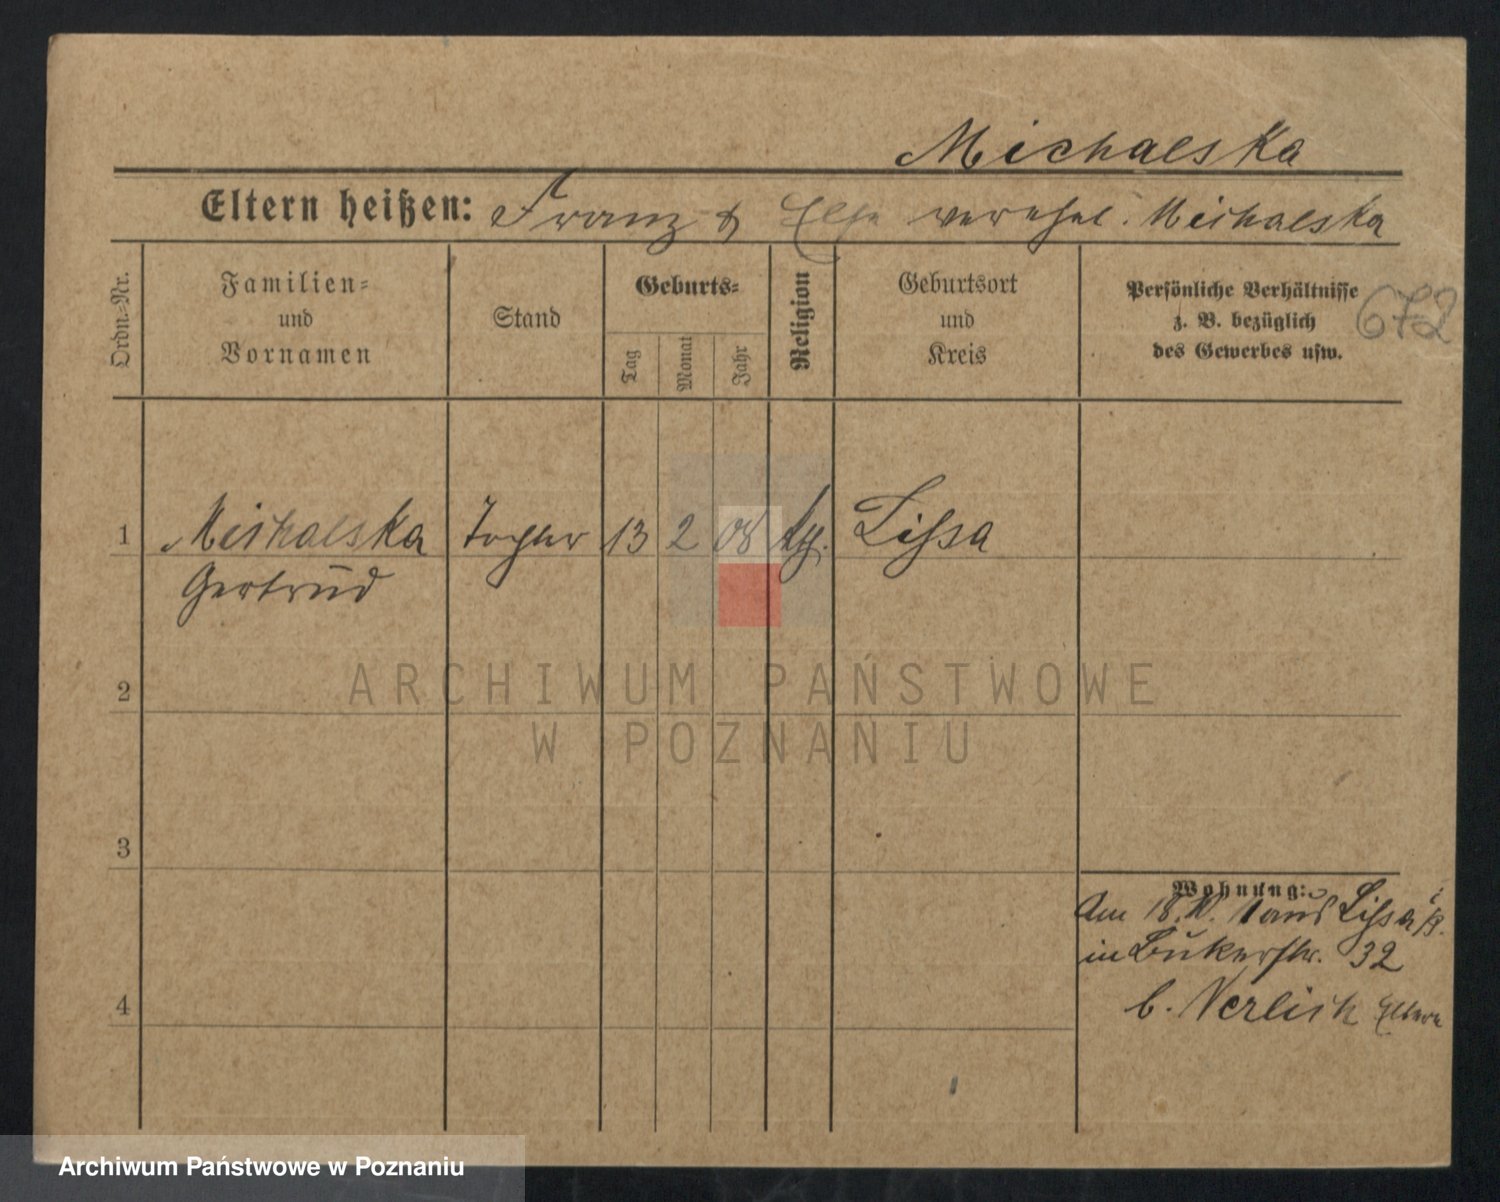 Michalska
Eltern heißen: Franz & Else verehel. Michalska
Ordn.-Nr.
Familien-
und
Vornamen
Stand
Geburts-
Tag
Monat
Jahr
Religion
Geburtsort
und
Kreis
Persönliche Verhältnisse
z. B. bezüglich
des Gewerbes usw.
672
1
Michalska Tochter 13 2 08 Lissa
Gertrud
2
3
4
Wohnung:
Am 18. aus Lissa i/P.
in Bukerstr. 32
b. Verlich Eltern
ARCHIWUM PAŃSTWOWE
W POZNANIU
Archiwum Państwowe w Poznaniu